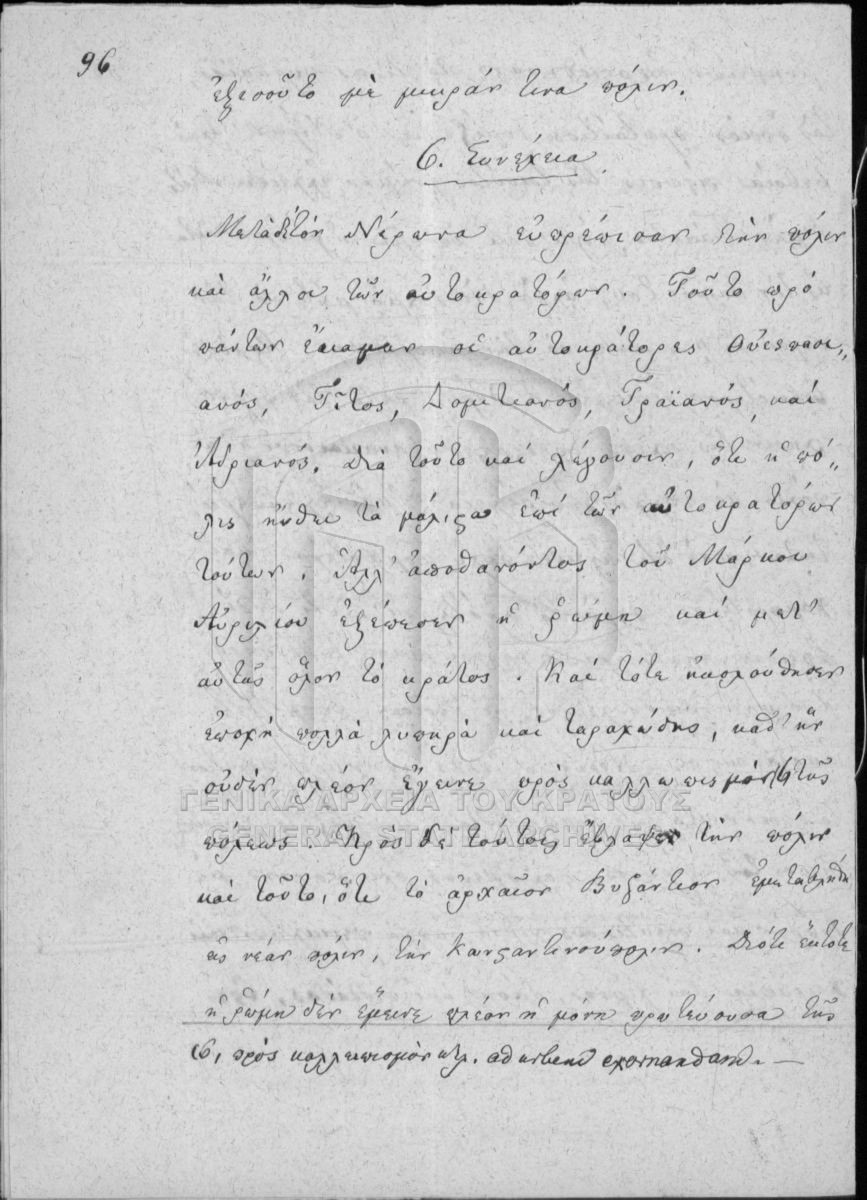 96
ἐξισοῦτο μὲ μικράν τινα πόλιν.
6. Συνέχεια.
Μετὰ δὲ τὸν Νέρωνα εὐπρέπισαν τὴν πόλιν
καὶ ἄλλοι τῶν αὐτοκρατόρων. Τοῦτο πρὸ
πάντων ἔκαμαν οἱ αὐτοκράτορες Οὐεσπασι„
ανός, Τῖτος, Δομιτιανός, Τραϊανός, καὶ
Ἀδριανός. Διὰ τοῦτο καὶ λέγουσιν, ὅτι ἡ πό„
λις ἤνθει τὰ μάλιστα ἐπὶ τῶν αὐτοκρατόρων
τούτων. Ἀλλ' ἀποθανόντος τοῦ Μάρκου
Αὐρηλίου ἐξέπεσεν ἡ Ῥώμη καὶ μετ'
αὐτῆς ὅλον τὸ κράτος. Καὶ τότε ἠκολούθησεν
ἐποχὴ πολλὰ λυπηρὰ καὶ ταραχώδης, καθ' ἣν
οὐδὲν πλέον ἔγεινε πρὸς καλλωπισμὸν (6 τῆς
πόλεως. Πρὸς δὲ τούτοις ἔβλαψε τὴν πόλιν
καὶ τοῦτο, ὅτι τὸ ἀρχαῖον Βυζάντιον ἐμεταβλήθη
εἰς νέαν πόλιν, τὴν Κωνσταντινούπολιν. Διότι ἔκτοτε
ἡ Ῥώμη δὲν ἔμεινε πλέον ἡ μόνη πρωτεύουσα τῆς
(6, πρὸς καλλωπισμὸν κτλ. ad urbem exornandam. —
ΓΕΝΙΚΑ ΑΡΧΕΙΑ ΤΟΥ ΚΡΑΤΟΥΣ
GENERAL STATE ARCHIVES